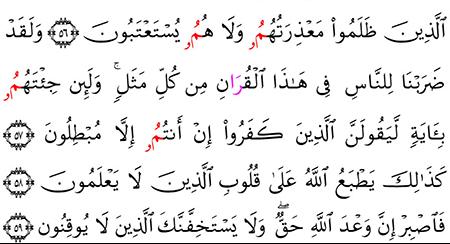 ٱلَّذِينَ ظَلَمُواْ مَعْذِرَتُهُمُۥ وَلَا هُمُۥ يُسْتَعْتَبُونَ ﴿٥٦﴾ وَلَقَدْ
ضَرَبْنَا لِلنَّاسِ فِي هَٰذَا ٱلْقُرَانِ مِن كُلِّ مَثَلٖۚ وَلَئِن جِئْتَهُمُۥ
بِـَٔايَةٖ لَّيَقُولَنَّ ٱلَّذِينَ كَفَرُواْ إِنْ أَنتُمُۥ إِلَّا مُبْطِلُونَ ﴿٥٧﴾
كَذَٰلِكَ يَطْبَعُ ٱللَّهُ عَلَىٰ قُلُوبِ ٱلَّذِينَ لَا يَعْلَمُونَ ﴿٥٨﴾
فَٱصْبِرْ إِنَّ وَعْدَ ٱللَّهِ حَقّٞۖ وَلَا يَسْتَخِفَّنَّكَ ٱلَّذِينَ لَا يُوقِنُونَ ﴿٥٩﴾